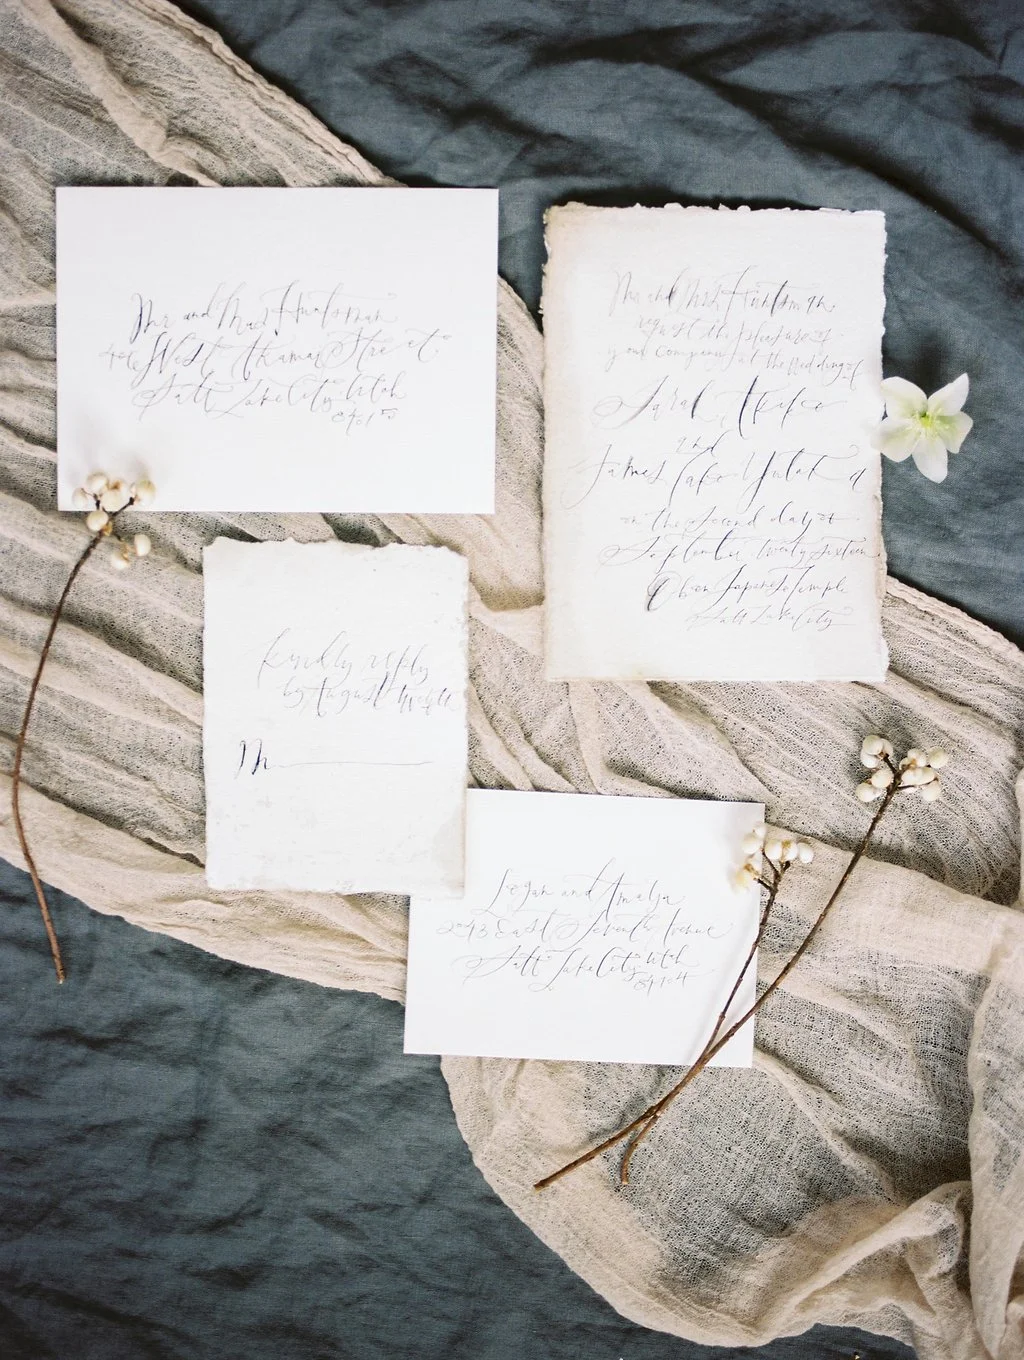 Mr and Mrs Huntsman
West Street
Salt Lake City, Utah
Mr and Mrs Huntsman
request the pleasure of
your company at the wedding of
Sarah
and
James Jake
on the second day of
September, twenty sixteen
Temple
Salt Lake City
kindly reply
by August twelfth
M
Logan and Amalia
East Seventh Avenue
Salt Lake City, Utah